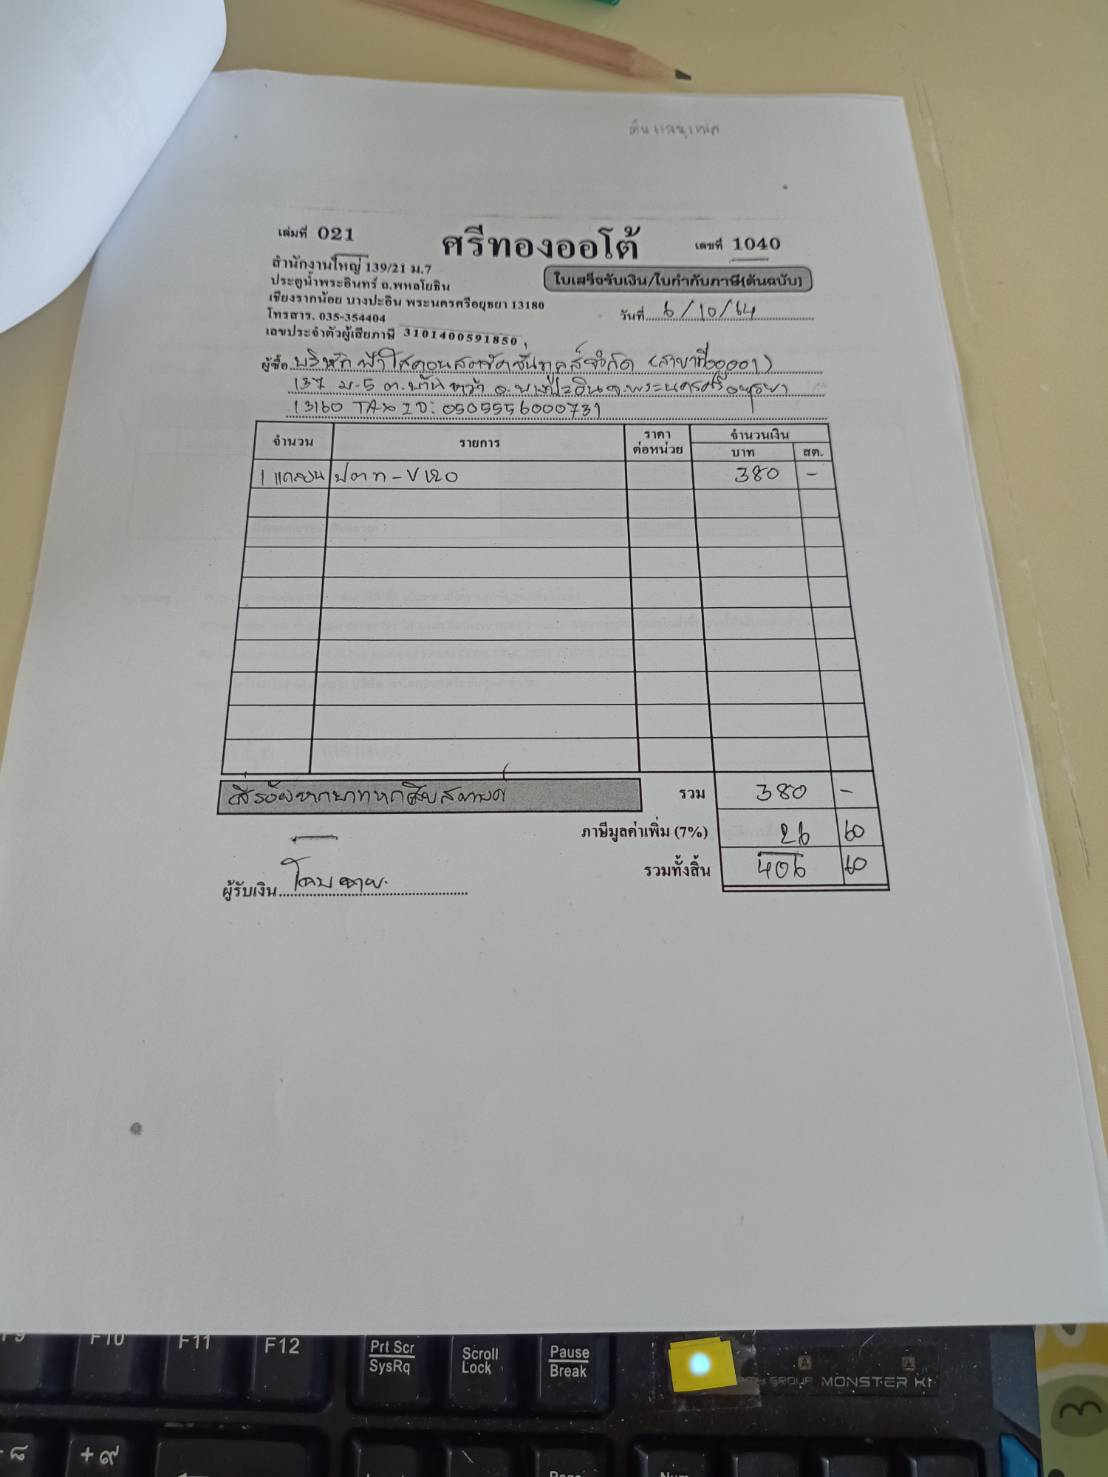 เล่มที่ 021
ศรีทองออโต้
เลขที่ 1040
สำนักงานใหญ่ 139/21 ม.7
ประตูน้ำพระอินทร์ ถ.พหลโยธิน
เชียงรากน้อย บางปะอิน พระนครศรีอยุธยา 13180
โทรสาร. 035-354404
เลขประจำตัวผู้เสียภาษี 3101400591850
ใบเสร็จรับเงิน/ใบกำกับภาษี(ต้นฉบับ)
วันที่ 6/10/64
ผู้ซื้อ บริษัท ฟ้าใสคอนสตรัคชั่นทูลส์จำกัด (สาขาที่00001)
137 ม.5 ต.บ้านหว้า อ.บางปะอิน จ.พระนครศรีอยุธยา
13160 TAX ID: 0505556000731
จำนวน รายการ ราคาต่อหน่วย จำนวนเงิน
บาท สต.
1 แกลอน ปตท - V120 380 -
สี่ร้อยหกบาทหกสิบสตางค์
รวม 380 -
ภาษีมูลค่าเพิ่ม (7%) 26 60
รวมทั้งสิ้น 406 60
ผู้รับเงิน
F10
F11
F12
Prt Scr
SysRq
Scroll
Lock
Pause
Break
GROUP MONSTER K1
+ ๙